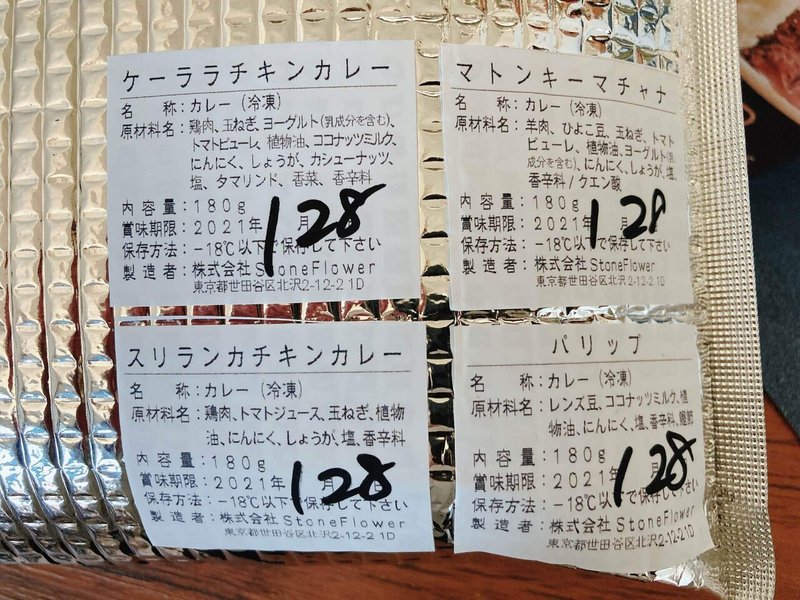 ケーララチキンカレー
名　　称：カレー（冷凍）
原材料名：鶏肉、玉ねぎ、ヨーグルト(乳成分を含む)、
トマトピューレ、植物油、ココナッツミルク、
にんにく、しょうが、カシューナッツ、
塩、タマリンド、香菜、香辛料
内容量：180g
賞味期限：2021年 1月 28
保存方法：−18℃以下で保存して下さい
製造者：株式会社StoneFlower
東京都世田谷区北沢2-12-2 1D
マトンキーマチャナ
名　　称：カレー（冷凍）
原材料名：羊肉、ひよこ豆、玉ねぎ、トマト
ピューレ、植物油、ヨーグルト(乳
成分を含む)、にんにく、しょうが、塩、
香辛料/クエン酸
内容量：180g
賞味期限：2021年 1月 28
保存方法：−18℃以下で保存して下さい
製造者：株式会社StoneFlower
東京都世田谷区北沢2-12-2 1D
スリランカチキンカレー
名　　称：カレー（冷凍）
原材料名：鶏肉、トマトジュース、玉ねぎ、植物
油、にんにく、しょうが、塩、香辛料
内容量：180g
賞味期限：2021年 1月 28
保存方法：−18℃以下で保存して下さい
製造者：株式会社StoneFlower
東京都世田谷区北沢2-12-2 1D
パリップ
名　　称：カレー（冷凍）
原材料名：レンズ豆、ココナッツミルク、植
物油、にんにく、塩、香辛料、
内容量：180g
賞味期限：2021年 1月 28
保存方法：−18℃以下で保存して下さい
製造者：株式会社StoneFlower
東京都世田谷区北沢2-12-2 1D